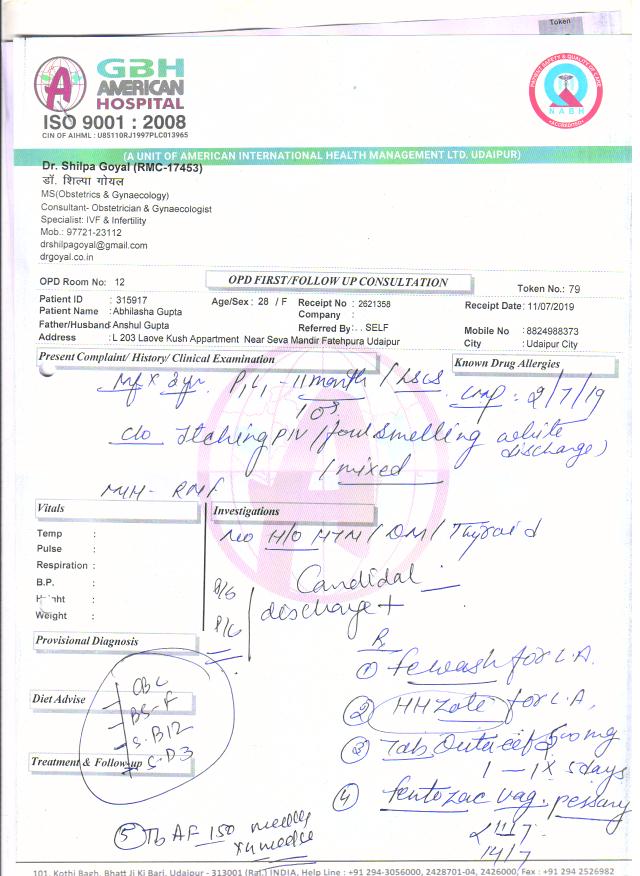 Token
GBH
AMERICAN
HOSPITAL
ISO 9001 : 2008
CIN OF AIHML : U85110RJ1997PLC013965
PATIENT SAFETY & QUALITY OF CARE
NABH
ACCREDITED
(A UNIT OF AMERICAN INTERNATIONAL HEALTH MANAGEMENT LTD. UDAIPUR)
Dr. Shilpa Goyal (RMC-17453)
डॉ. शिल्पा गोयल
MS(Obstetrics & Gynaecology)
Consultant- Obstetrician & Gynaecologist
Specialist: IVF & Infertility
Mob.: 97721-23112
drshilpagoyal@gmail.com
drgoyal.co.in
OPD Room No: 12
OPD FIRST/FOLLOW UP CONSULTATION
Token No.: 79
Patient ID : 315917
Age/Sex : 28 / F
Receipt No : 2621358
Receipt Date: 11/07/2019
Patient Name : Abhilasha Gupta
Company :
Father/Husband: Anshul Gupta
Referred By : . . SELF
Mobile No : 8824988373
Address : L 203 Laove Kush Appartment Near Seva Mandir Fatehpura Udaipur
City : Udaipur City
Present Complaint/ History/ Clinical Examination
Known Drug Allergies
P1L1 - 11 month / LSCS
LMP : 2/7/19
c/o Itching P/V / foul smelling white
discharge)
/ mixed
M/H - RMF
Vitals
Investigations
No H/O HTN / DM / Thyroid
Temp :
Pulse :
Respiration :
B.P. :
Height :
Weight :
Candidal
discharge +
Provisional Diagnosis
Rx
① fewash for L.A.
CBC
Diet Advise
② HHZole for L.A,
S.B12
③ Tab 500mg
Treatment & Follow-up
S-D3
1 - 1 x 5 days
④ fentozac vag. pessary
11/7
14/7
⑤ Tb AF 150 weekly
101, Kothi Bagh, Bhatt Ji Ki Bari, Udaipur - 313001 (Raj.) INDIA, Help Line : +91 294-3056000, 2428701-04, 2426000, Fax : +91 294 2526982